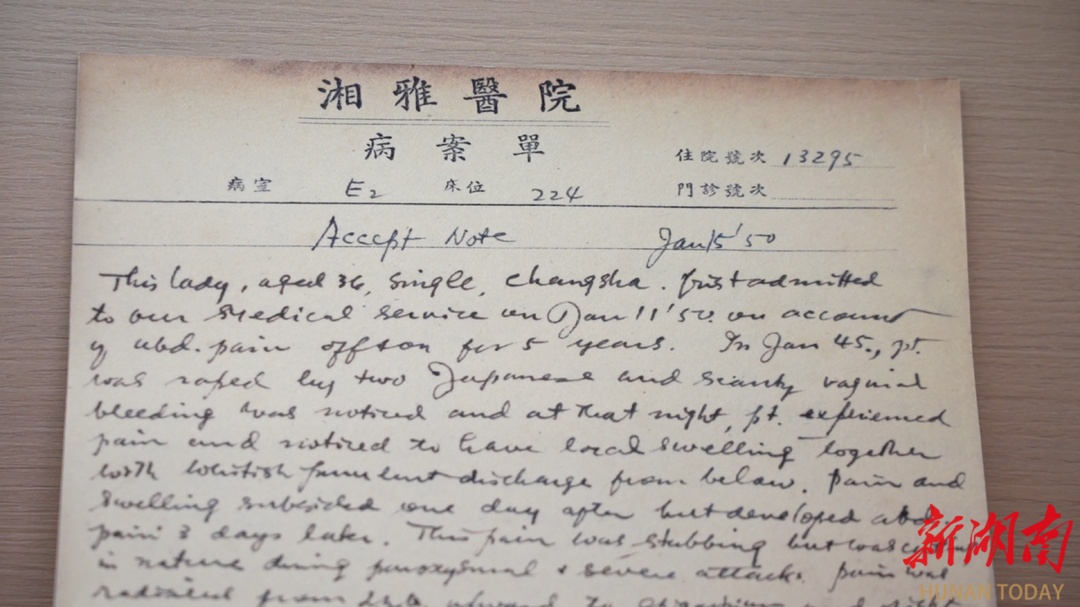 湘雅醫院
病案單
住院號次 13295
病室 E2 床位 224 門診號次
Accept Note Jan 15 '50
This lady, aged 36, single, Changsha. first admitted
to our Medical service on Jan 11 '50. on account
of abd. pain off & on for 5 years. In Jan 45., pt.
was raped by two Japanese and scanty vaginal
bleeding was noticed and at that night, pt. experienced
pain and noticed to have local swelling together
with whitish purulent discharge from below. Pain and
swelling subsided one day after but developed abd.
pain 3 days later. This pain was stabbing but was
in nature during paroxysmal & severe attacks. Pain was
radiated from upward to
新湖南
HUNAN TODAY